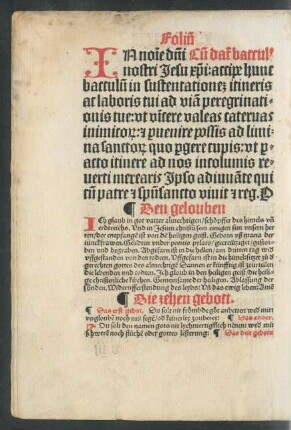 Foliū
IN noīe dn̄i Cū dat̄ baccul⁹
nostri Jesu xp̄i: accipe hunc
baculū in sustentationē itineris
ac laboris tui ad viā peregrinati-
onis tue: vt vincere valeas cateruas
inimicoꝝ: ⁊ puenire possis ad limi-
na sanctoꝝ quo pgere cupis: vt p
acto itinere ad nos incolumis re-
uerti merearis Ipso adiuuāte qui
cū patre ⁊ spūsancto viuit ⁊ reg. O
¶ Den gelouben
Ich glaub in got vatter almechtigen schöpffer des himels vn̄
erdtrichs. Vnd in Jesum christū sein einigen sun vnsern her
ren der empfangē ist von dē heiligen geist. Geborn vß maria der
iunckfrawē. Gelitten vnder poncio pylato gecreütziget gestor
ben vnd begraben. Abgestigen ist zu der hellen, am dritten tag
vfferstanden von den todten. Vffgestigen ist in die himel sitzet zů d
gerechten gottes des almechtigē Dannen er künfftig ist zů vrteilē
die lebenden vnd todten. Ich glaub in den heiligen geist die heili
ge christenliche kirchen. Gemeinsame der heiligen. Ablassung der
sünden. Widervfferstendung des leybs Vn̄ das ewig leben Amē
¶ Die zehen gebott.
¶ Das erst gebot. Du solt nit frömbde göt anbetten
vngloube noch keinerley zouberey ¶ Das ander
Du solt den namen gots nit leychtuertigklich nennē
schweren noch flüchē oder gottes lesterung: ¶ Das drit gebott